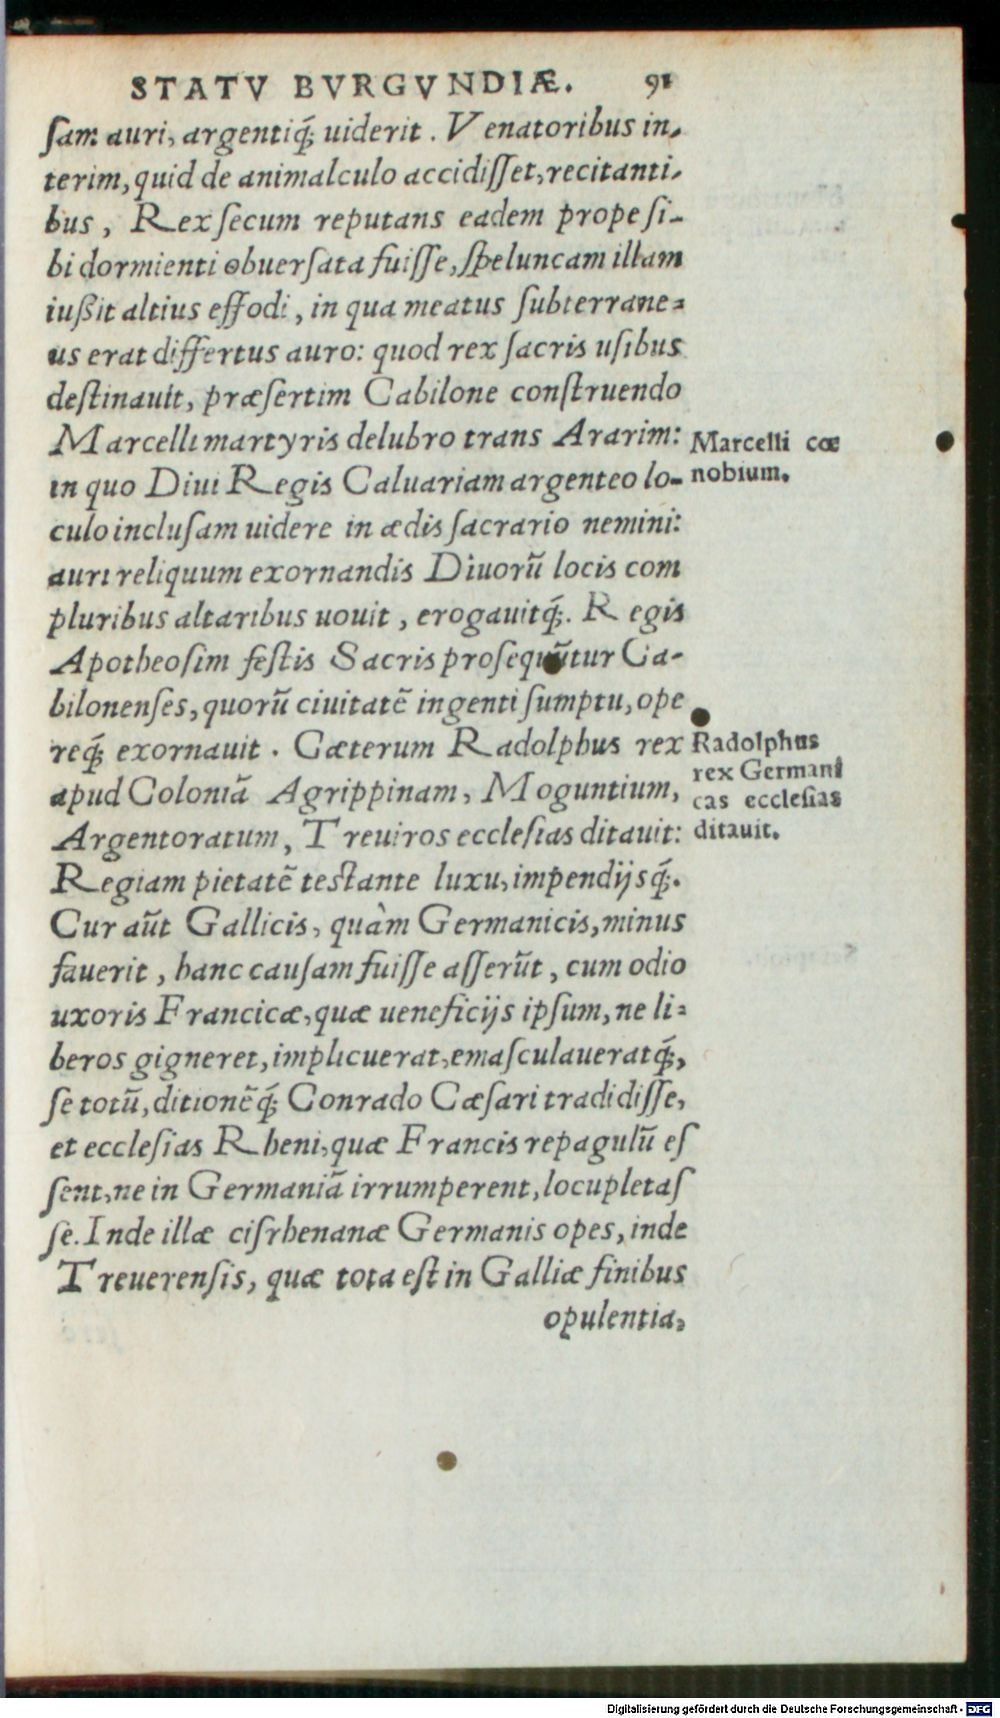 STATV BVRGVNDIÆ. 91
ſam auri, argentiq́; uiderit. Venatoribus in-
terim, quid de animalculo accidiſſet, recitanti-
bus, Rex ſecum reputans eadem prope ſi-
bi dormienti obuerſata fuiſſe, ſpeluncam illam
iußit altius effodi, in qua meatus ſubterrane-
us erat differtus auro: quod rex ſacris uſibus
deſtinauit, præſertim Cabilone conſtruendo
Marcelli martyris delubro trans Ararim:
in quo Diui Regis Caluariam argenteo lo-
culo incluſam uidere in ædis ſacrario nemini:
auri reliquum exornandis Diuorũ locis com
pluribus altaribus uouit, erogauitq́;. Regis
Apotheoſim feſtis Sacris proſequũtur Ca-
bilonenſes, quorũ ciuitatẽ ingenti ſumptu, ope
req́; exornauit. Cæterum Radolphus rex
apud Coloniã Agrippinam, Moguntium,
Argentoratum, Treuiros eccleſias ditauit:
Regiam pietatẽ teſtante luxu, impendijsq́;.
Cur aũt Gallicis, quàm Germanicis, minus
fauerit, hanc cauſam fuiſſe aſſerũt, cum odio
uxoris Francicæ, quæ ueneficijs ipſum, ne li-
beros gigneret, implicuerat, emaſculaueratq́;,
ſe totũ, ditionẽq́; Conrado Cæſari tradidiſſe,
et eccleſias Rheni, quæ Francis repagulũ eſ
ſent, ne in Germaniã irrumperent, locupletaſ
ſe. Inde illæ ciſrhenanæ Germanis opes, inde
Treuerenſis, quæ tota eſt in Galliæ finibus
opulentia,
Marcelli cœ
nobium.
Radolphus
rex Germani
cas eccleſias
ditauit.
Digitalisierung gefördert durch die Deutsche Forschungsgemeinschaft - DFG